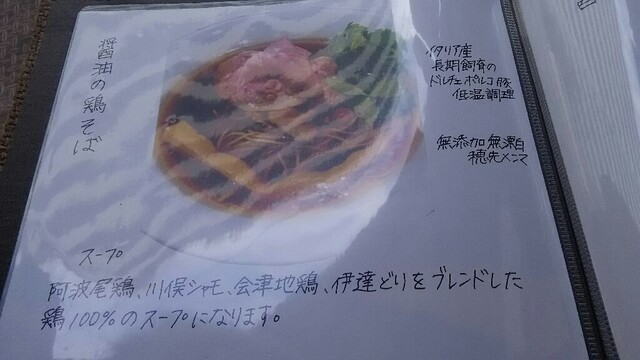 醤油の鶏そば
イタリア産
長期飼育の
ドルチェポルコ豚
低温調理
無添加無漂白
穂先メンマ
スープ
阿波尾鶏、川俣シャモ、会津地鶏、伊達どりをブレンドした
鶏100%のスープになります。